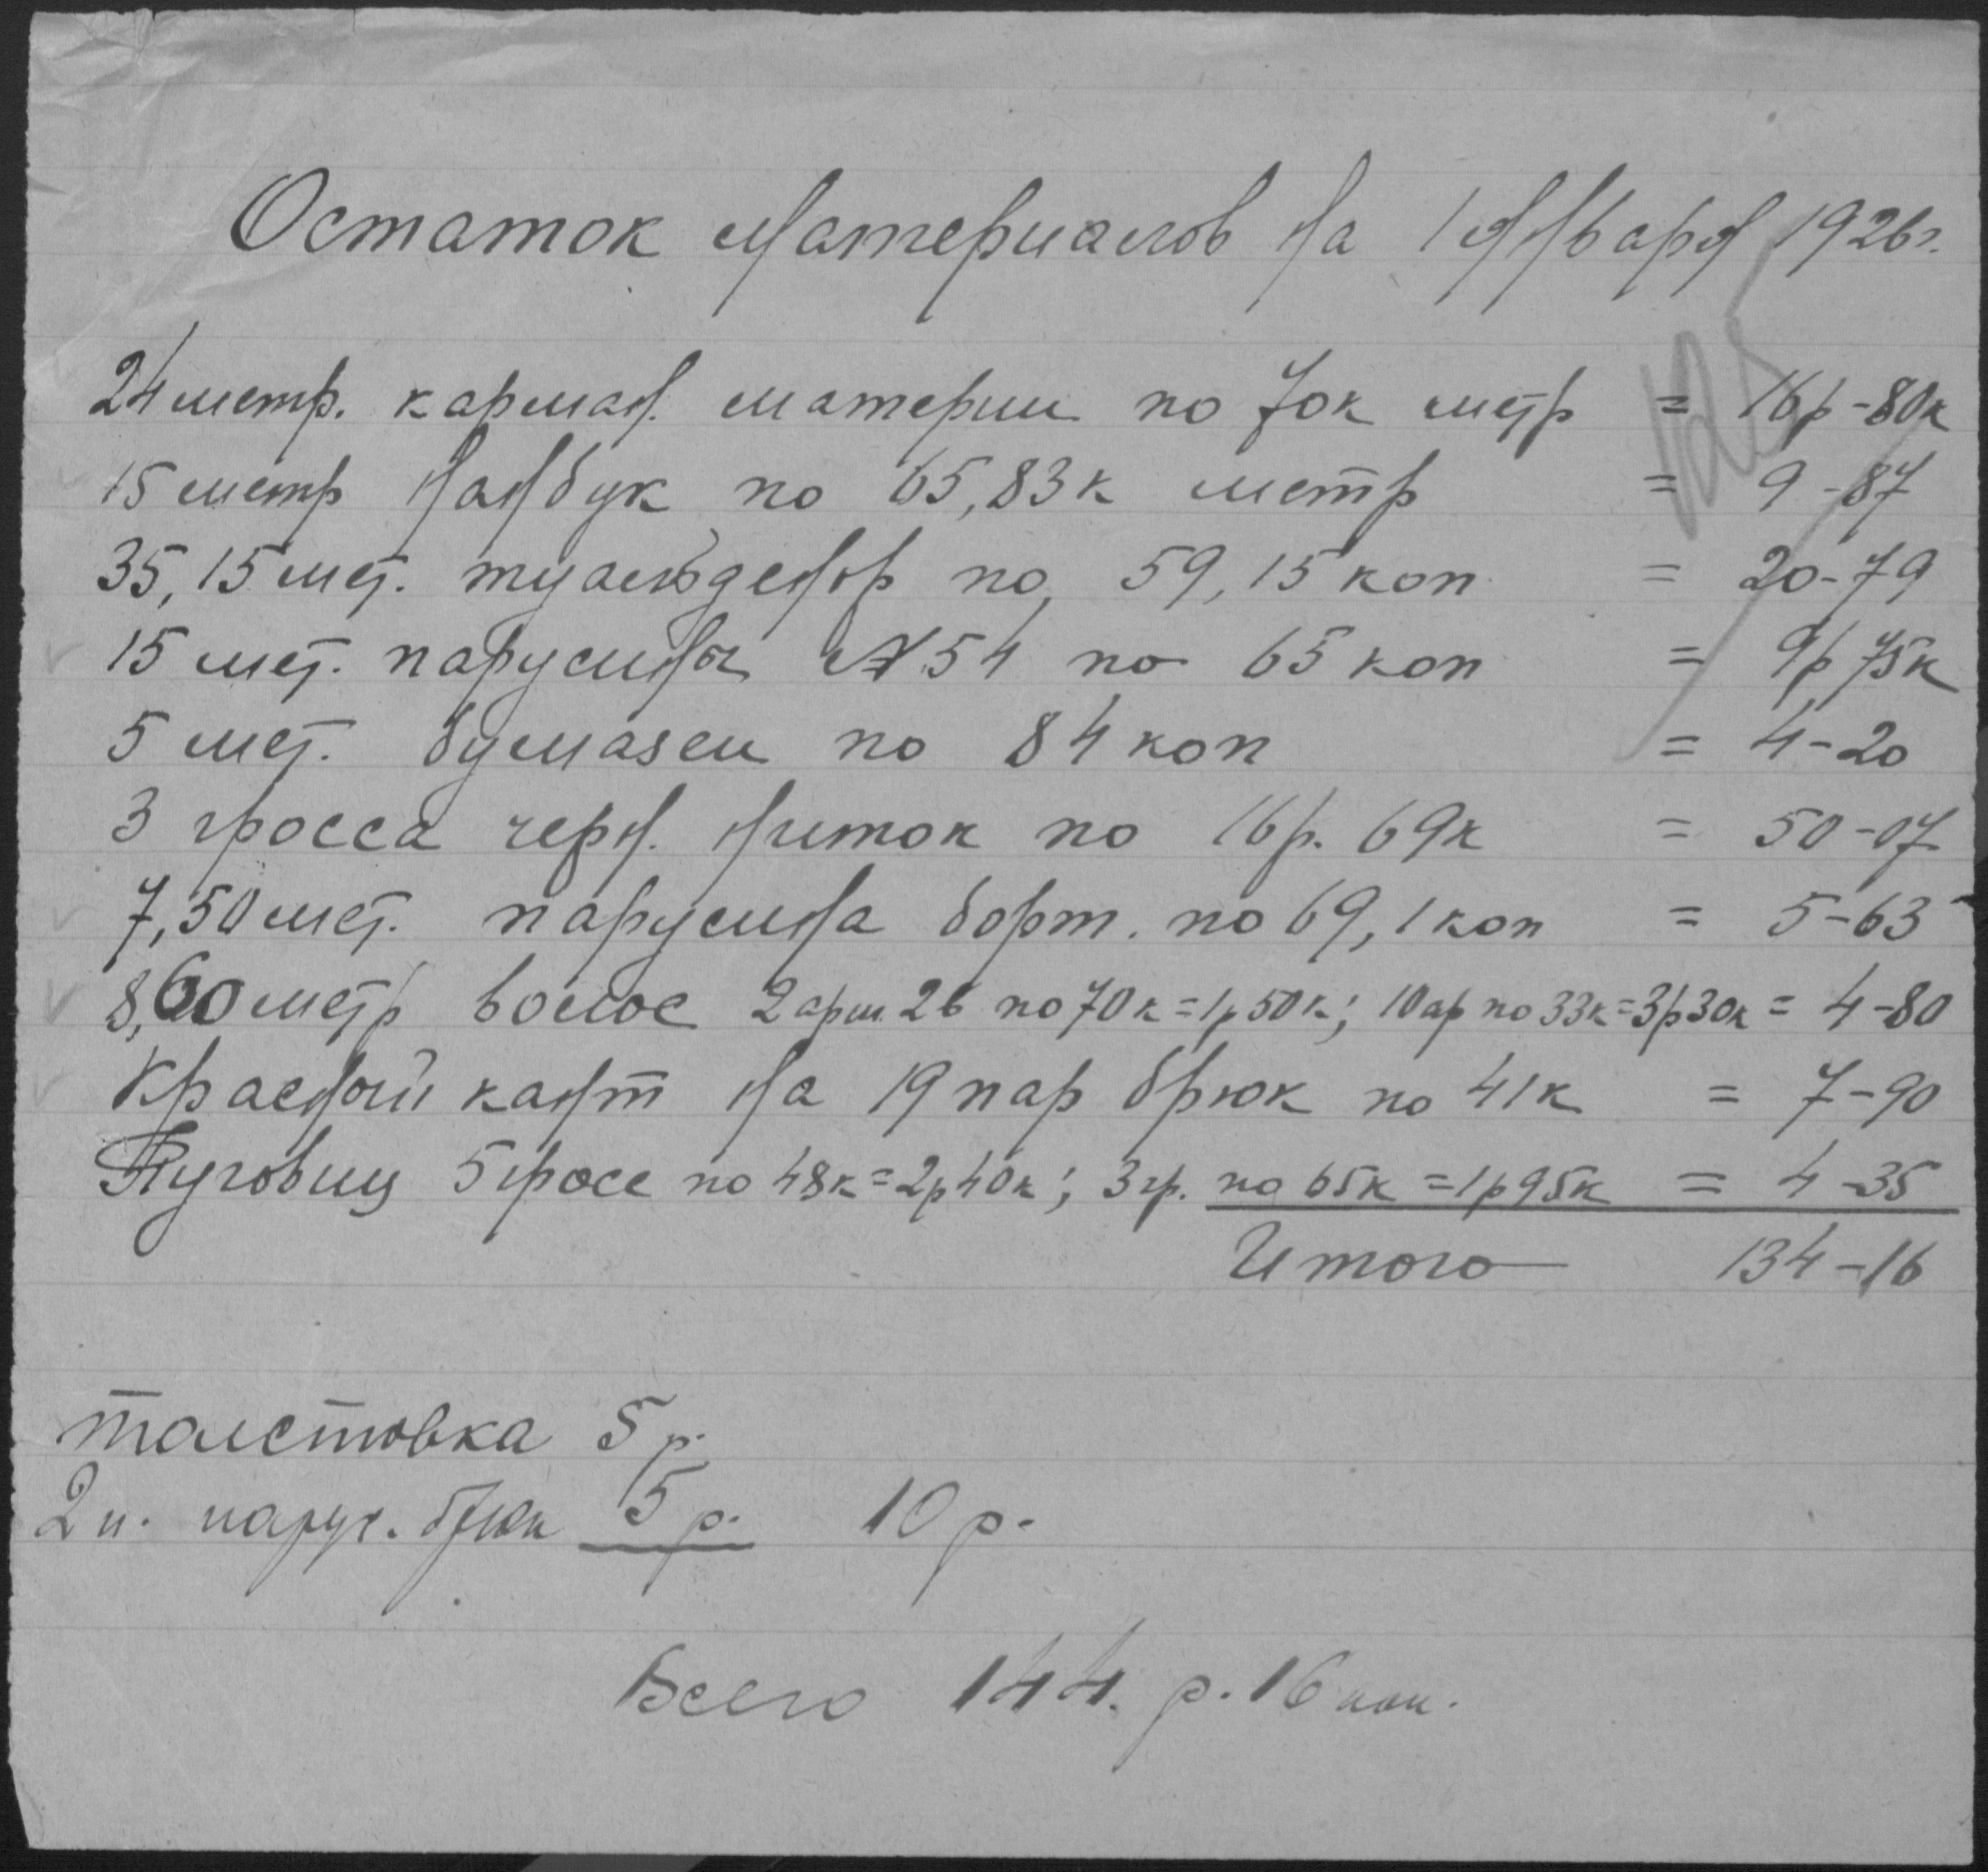 Остаток материалов на 1 января 1926 г.
125
24 метр. карман. материи по 70 к метр = 16 р - 80 к
15 метр нанбук по 65,83 к метр = 9 - 87
35,15 мет. туальденор по, 59,15 коп = 20 - 79
15 мет. парусины №54 по 65 коп = 9 р 75 к
5 мет. бумазеи по 84 коп = 4 - 20
3 гросса черн. ниток по 16 р. 69 к = 50 - 07
7,50 мет. парусина борт. по 69,1 коп = 5 - 63
8,60 метр волос 2 арш. 2 в по 70 к = 1 р 50 к; 10 ар по 33 к = 3 р 30 к = 4 - 80
Красный кант на 19 пар брюк по 41 к = 7 - 90
Пуговиц 5 гросс по 48 к = 2 р 40 к; 3 гр. по 65 к = 1 р 95 к = 4 - 35
Итого 134 - 16
толстовка 5 р.
2 п. парус. брюк 5 р. 10 р.
Всего 144. р. 16 коп.